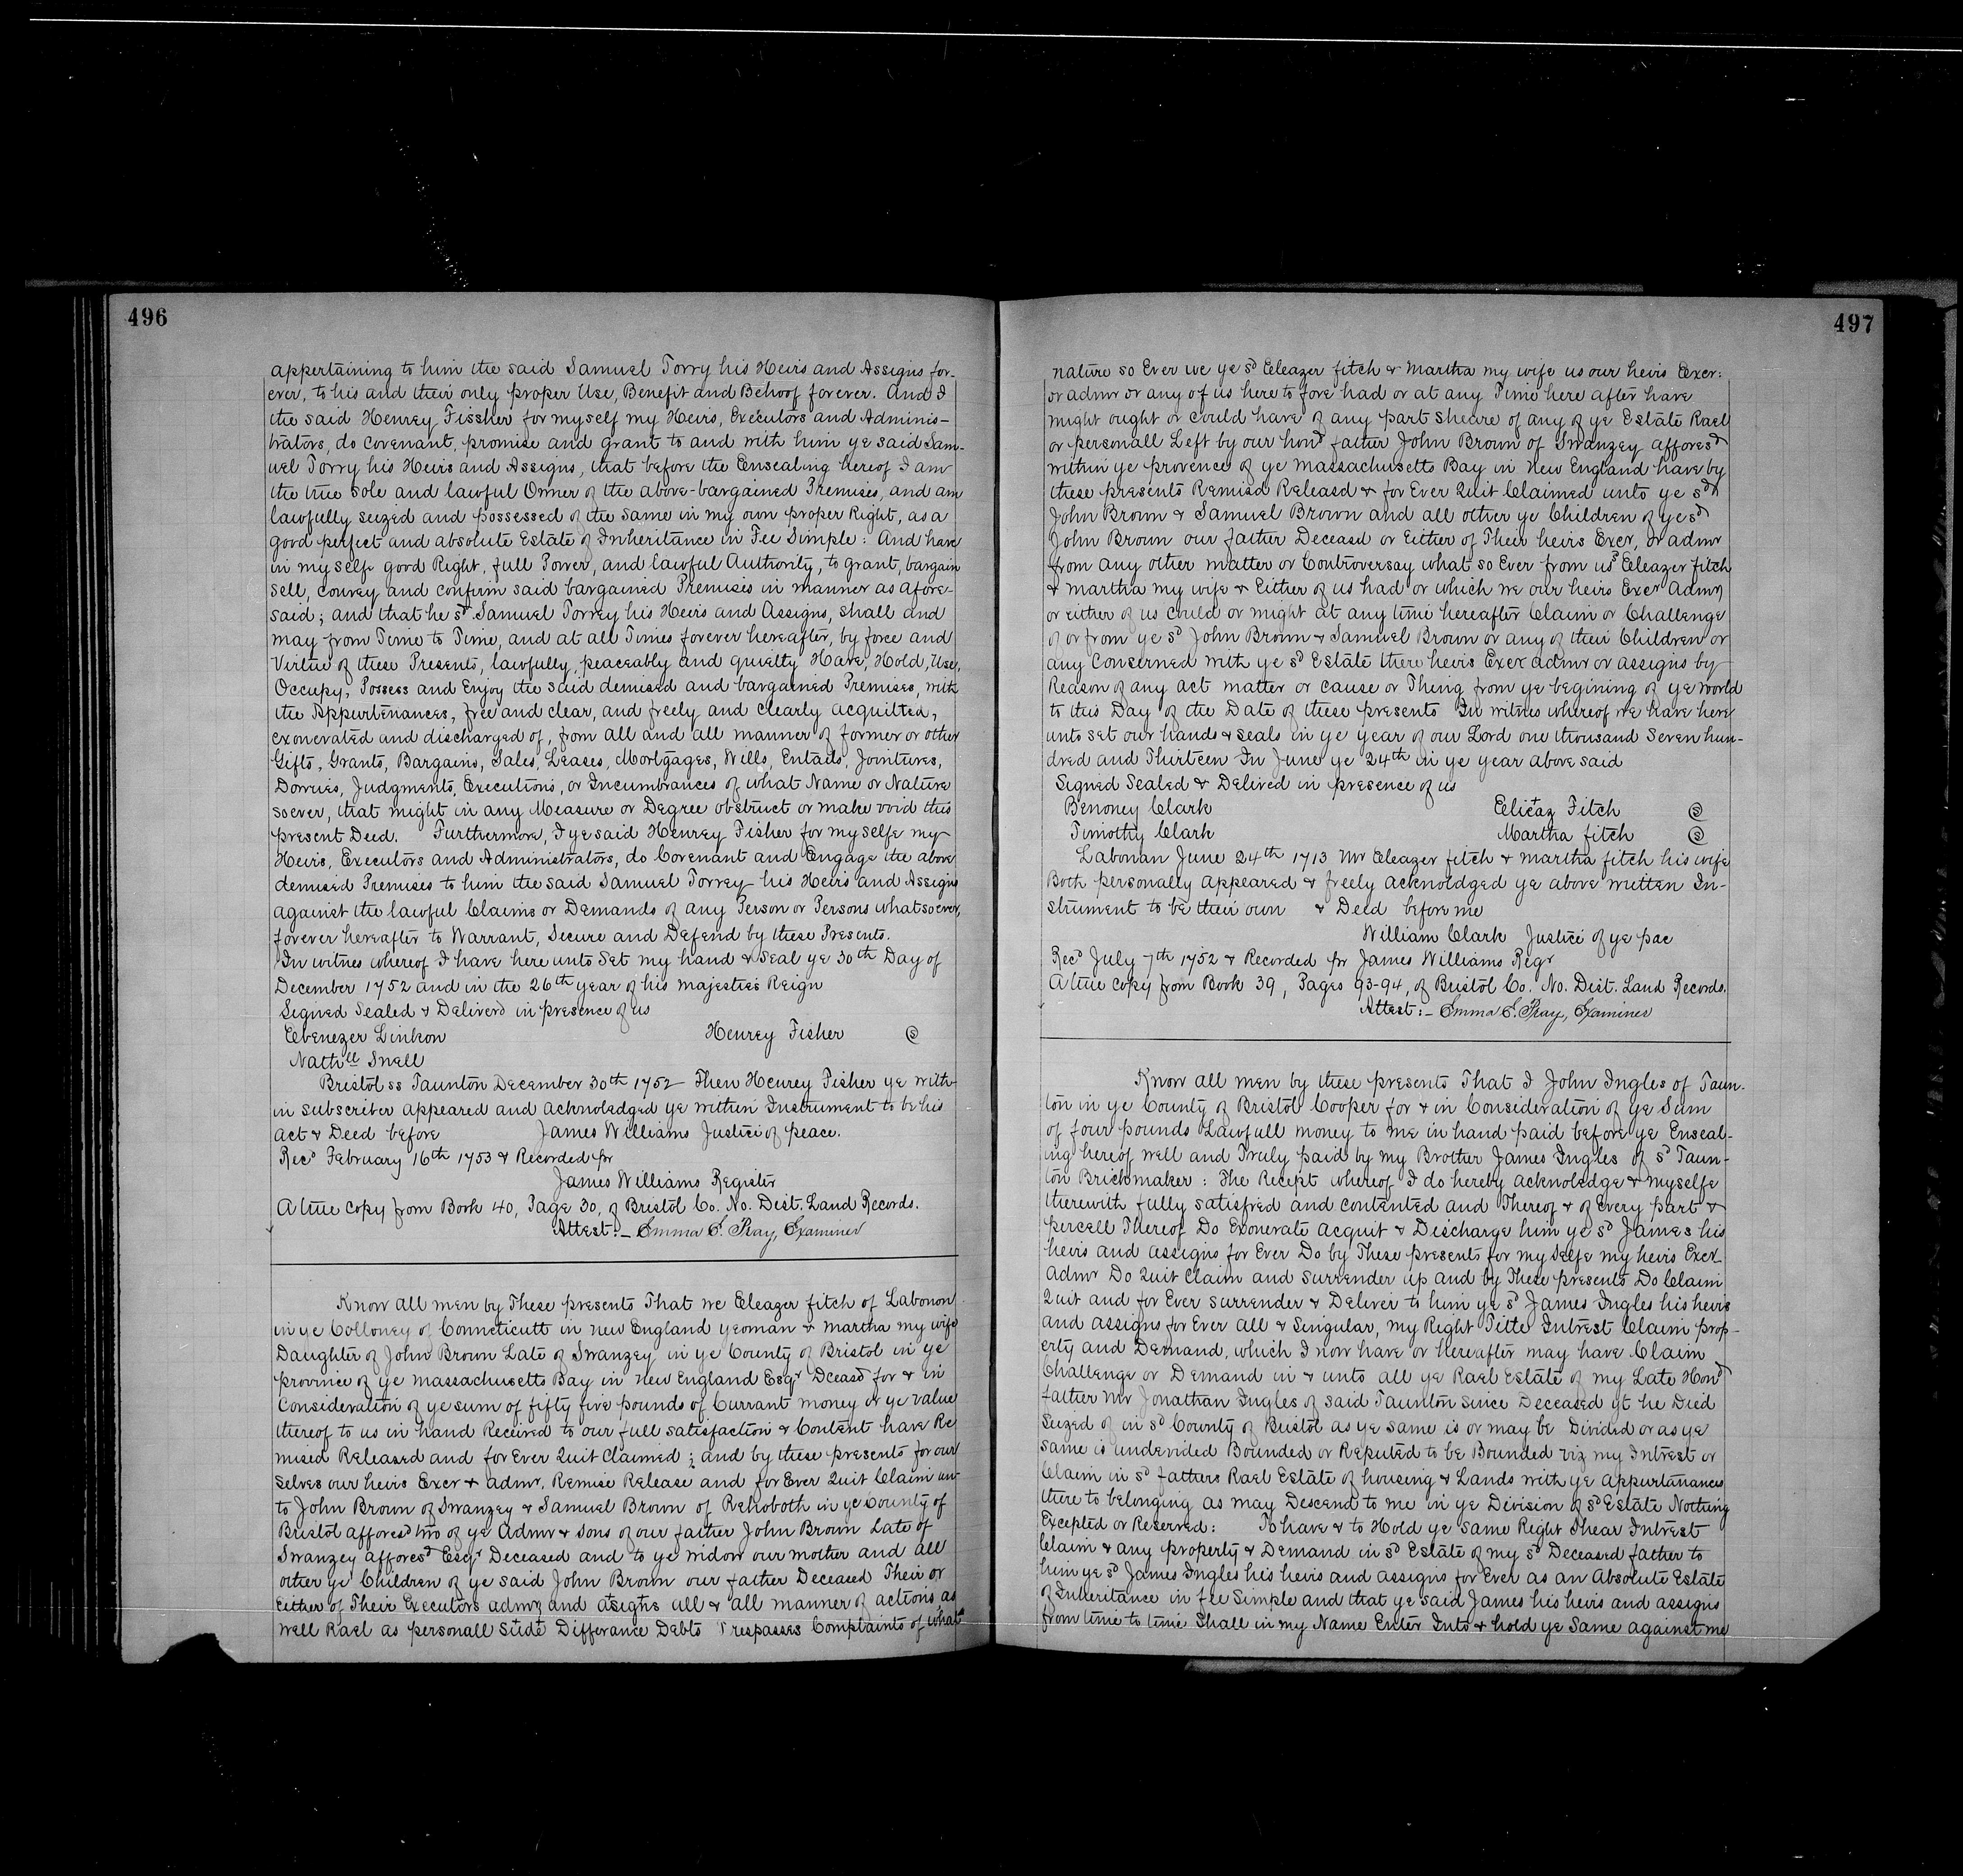 496
appertaining to him the said Samuel Torry his Heirs and Assigns for-
ever, to his and their only proper Use, Benefit and Behoof forever. And I
the said Henrey Fissher for myself my Heirs, Executors and Adminis-
trators, do covenant, promise and grant to and with him ye said Sam-
uel Torry his Heirs and Assigns, that before the Ensealing hereof I am
the true sole and lawful Owner of the above-bargained Premises, and am
lawfully seized and possessed of the same in my own proper Right, as a
good perfect and absolute Estate of Inheritance in Fee Simple: And have
in my selfe good Right, full Power, and lawful Authority, to grant, bargain
sell, convey and confirm said bargained Premises in manner as afore-
said; and that he sd Samuel Torrey his Heirs and Assigns, shall and
may from Time to Time, and at all Times forever hereafter, by force and
Virtue of these Presents, lawfully, peaceably and quietly Have, Hold, Use,
Occupy, Possess and Enjoy the said demised and bargained Premises, with
the Appurtenances, free and clear, and freely and clearly acquitted,
exonerated and discharged of, from all and all manner of former or other
Gifts, Grants, Bargains, Sales, Leases, Mortgages, Wills, Entails, Jointures,
Dowries, Judgments, Executions, or Incumbrances of what Name or Nature
soever, that might in any Measure or Degree obstruct or make void this
present Deed. Furthermore, I ye said Henrey Fisher for my selfe my
Heirs, Executors and Administrators, do Covenant and Engage the above
demised Premises to him the said Samuel Torrey his Heirs and Assigns
against the lawful Claims or Demands of any Person or Persons whatsoever,
forever hereafter to Warrant, Secure and Defend by these Presents.
In witnes whereof I have here unto Set my hand & Seal ye 30th Day of
December 1752 and in the 26th year of his majesties Reign
Signed Sealed & Deliverd in presence of us
Ebenezer Linkon Henrey Fisher (S)
Nathll Snell
Bristol ss Taunton December 30th 1752 Then Henrey Fisher ye with-
in subscriber appeared and acknoledged ye within Instrument to be his
act & Deed before James Williams Justice of peace.
Recd February 16th 1753 & Recorded pr
James Williams Register
A true copy from Book 40, Page 30, of Bristol Co. No. Dist. Land Records.
Attest:- Emma E. Pray, Examiner
Know all men by These presents That we Eleazer fitch of Labonon
in ye Colloney of Connecticutt in new England yeoman & martha my wife
Daughter of John Brown Late of Swanzey in ye County of Bristol in ye
province of ye massachusetts Bay in new England Esqr Dceasd for & in
Consideration of ye sum of fifty five pounds of Currant money or ye value
thereof to us in hand Received to our full satisfaction & Content have Re
mised Released and for Ever Quit Claimed; and by these presents for our
selves our heirs Excr & admr, Remise Release and for Ever Quit Claim un-
to John Brown of Swanzey & Samuel Brown of Rehoboth in ye County of
Bristol afforesd two of ye Admr & Sons of our father John Brown Late of
Swanzey afforesd Esqr Deceased and to ye widow our mother and all
other ye Children of ye said John Brown our father Deceased Their or
Either of Their Executors admrs and asigns all & all manner of actions as
well Rael as personall Sude Differance Debts Trespasses Complaints of what
497
nature so Ever we ye sd Eleazer fitch & Martha my wife us our heirs Excr:
or admr or any of us here to fore had or at any Time here after have
might ought or could have of any part sheare of any of ye Estate Rael
or personall Left by our hond father John Brown of Swanzey afforesd
within ye provence of ye massachusetts Bay in New England have by
these presents Remisd Releasd & for Ever Quit Claimed unto ye sd
John Brown & Samuel Brown and all other ye Children of ye sd
John Brown our father Deceasd or Either of Their heirs Excr, or admr
from any other matter or Controversay what so Ever from us sd Eleazer fitch
& martha my wife & Either of us had or which we our heirs Excr Admr
or either of us could or might at any time hereafter Claim or Challenge
of or from ye sd John Brown & Samuel Brown or any of their Children or
any Conserned with ye sd Estate there heirs Excr admr or assigns by
Reason of any act matter or cause or Thing from ye begining of ye world
to this Day of the Date of these presents In witnes whereof we have here
unto set our hands & seals in ye year of our Lord one thousand Seven hun-
dred and Thirteen In June ye 24th in ye year above said
Signed Sealed & Delived in presence of us
Benoney Clark Eliezaz Fitch (S)
Timothy Clark Martha fitch (S)
Labonan June 24th 1713 Mr Eleazer fitch & martha fitch his wife
Both personally appeared & freely acknoldged ye above written In-
strument to be their own & Deed before me
William Clark Justice of ye pac
Recd July 7th 1752 & Recorded pr James Williams Regr
A true copy from Book 39, Pages 93-94, of Bristol Co. No. Dist. Land Records.
Attest:- Emma E. Pray, Examiner
Know all men by these presents That I John Ingles of Taun-
ton in ye County of Bristol Cooper for & in Consideration of ye Sum
of four pounds Lawfull money to me in hand paid before ye Enseal-
ing hereof well and Truly paid by my Brother James Ingles of sd Taun-
ton Brickmaker: The Recept whereof I do hereby acknoledge & myselfe
therewith fully satisfied and contented and Thereof & of Every part &
percell Thereof Do Exonerate acquit & Discharge him ye sd James his
heirs and assigns for Ever Do by These presents for my Selfe my heirs Excr
Admr Do Quit Claim and surrender up and by These presents Do Claim
Quit and for Ever surrender & Deliver to him ye sd James Ingles his heirs
and assigns for Ever all & Singular, my Right Title Intrest Claim prop-
erty and Demand, which I now have or hereafter may have Claim
Challenge or Demand in & unto all ye Rael Estate of my Late Hond
father Mr Jonathan Ingles of said Taunton since Deceased yt he Died
Seized of in sd County of Bristol as ye same is or may be Divided or as ye
same is undevided Bounded or Reputed to be Bounded viz my Intrest or
Claim in sd fathers Rael Estate of housing & Lands with ye appurtinances
there to belonging as may Descend to me in ye Division of sd Estate Nothing
Excepted or Reserved: To have & to Hold ye same Right Shear Intrest
Claim & any property & Demand in sd Estate of my sd Deceased father to
him ye sd James Ingles his heirs and assigns for Ever as an Absolute Estate
of Inheritance in fee Simple and that ye said James his heirs and assigns
from time to time Shall in my Name Enter Into & hold ye Same against me